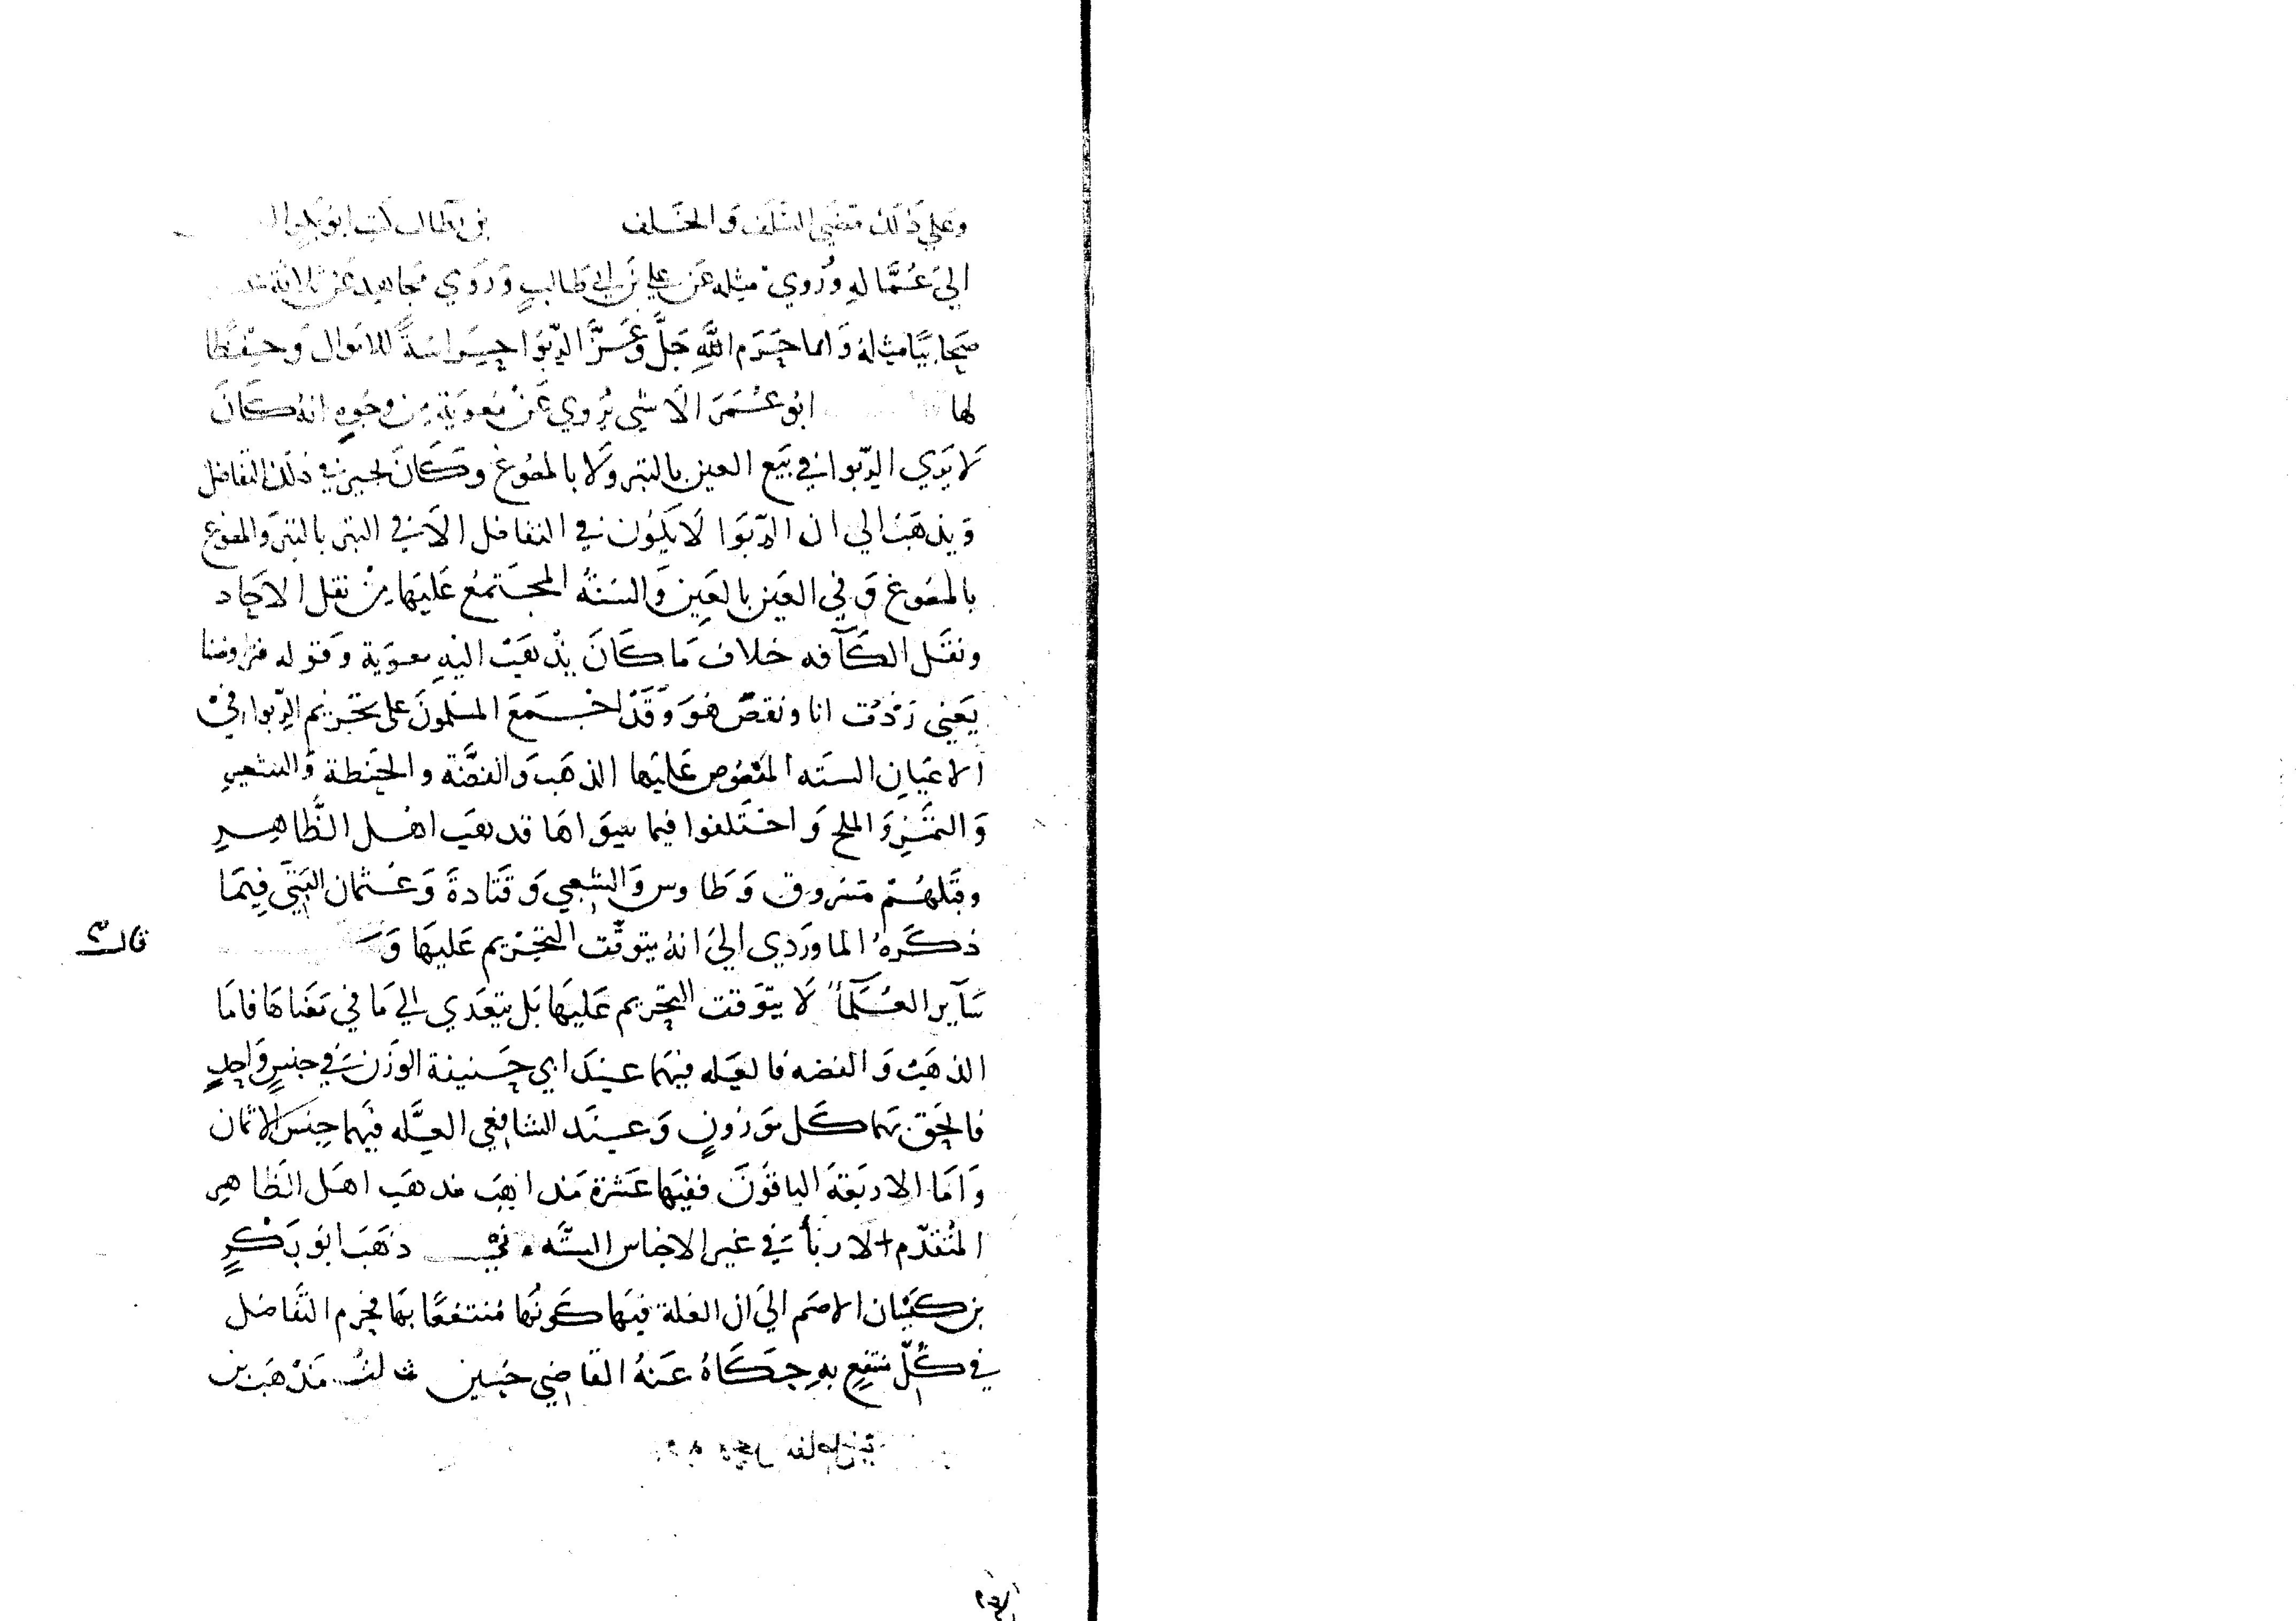 وعلي ذلك مضي السلف والخلف بن بطال كتب ابو بكر
الي عماله وروي مثله عن علي بن ابي طالب وروي مجاهد عن
صحابيا مثله وانما حرم الله جل وعز الربوا حراسة للاموال وحفظا
لها ابو عمر الاشي يروي عن معوية من وجوه انه كان
لا يري الربوا في بيع العين بالتبر ولا بالمصوغ وكان يجيز في ذلك التفاضل
ويذهب الي ان الربوا لا يكون في التفاضل الا في التبر بالتبر والمصوغ
بالمصوغ وفي العين بالعين والسنة المجتمع عليها من نقل الاحاد
ونقل الكآفه خلاف ما كان يذهب اليه معوية وقوله فتراوضنا
يعني زدت انا ونقص هو وقد اجمع المسلمون على تحريم الربوا في
الاعيان السته المنصوص عليها الذهب والفضة والحنطة والشعير
والتمر والملح واختلفوا فيما سواها قدهب اهل الظاهر
وقبلهم مسروق وطاوس والشعبي وقتادة وعثمان البتي فيما
ذكره الماوردي الي انه يتوقت التحريم عليها و
قالت
سآير العلمآ لا يتوقت التحريم عليها بل يتعدي الي ما في معناها فاما
الذهب والفضه فالعله فيهما عند ابي حنيفة الوزن في جنس واحد
فالحق بهما كل موزون وعند الشافعي العله فيهما جنس الاثمان
واما الاربعة الباقون ففيها عشرة مذاهب مذهب اهل الظاهر
المتقدم لا ربا في غير الاجناس السته ذهب ابو بكر
بن كيسان الاصم الي ان العلة فيها كونها منتفعا بها فيحرم التفاضل
في كل منتفع به حكاه عنه القاضي حسين ثالث مذهب بن